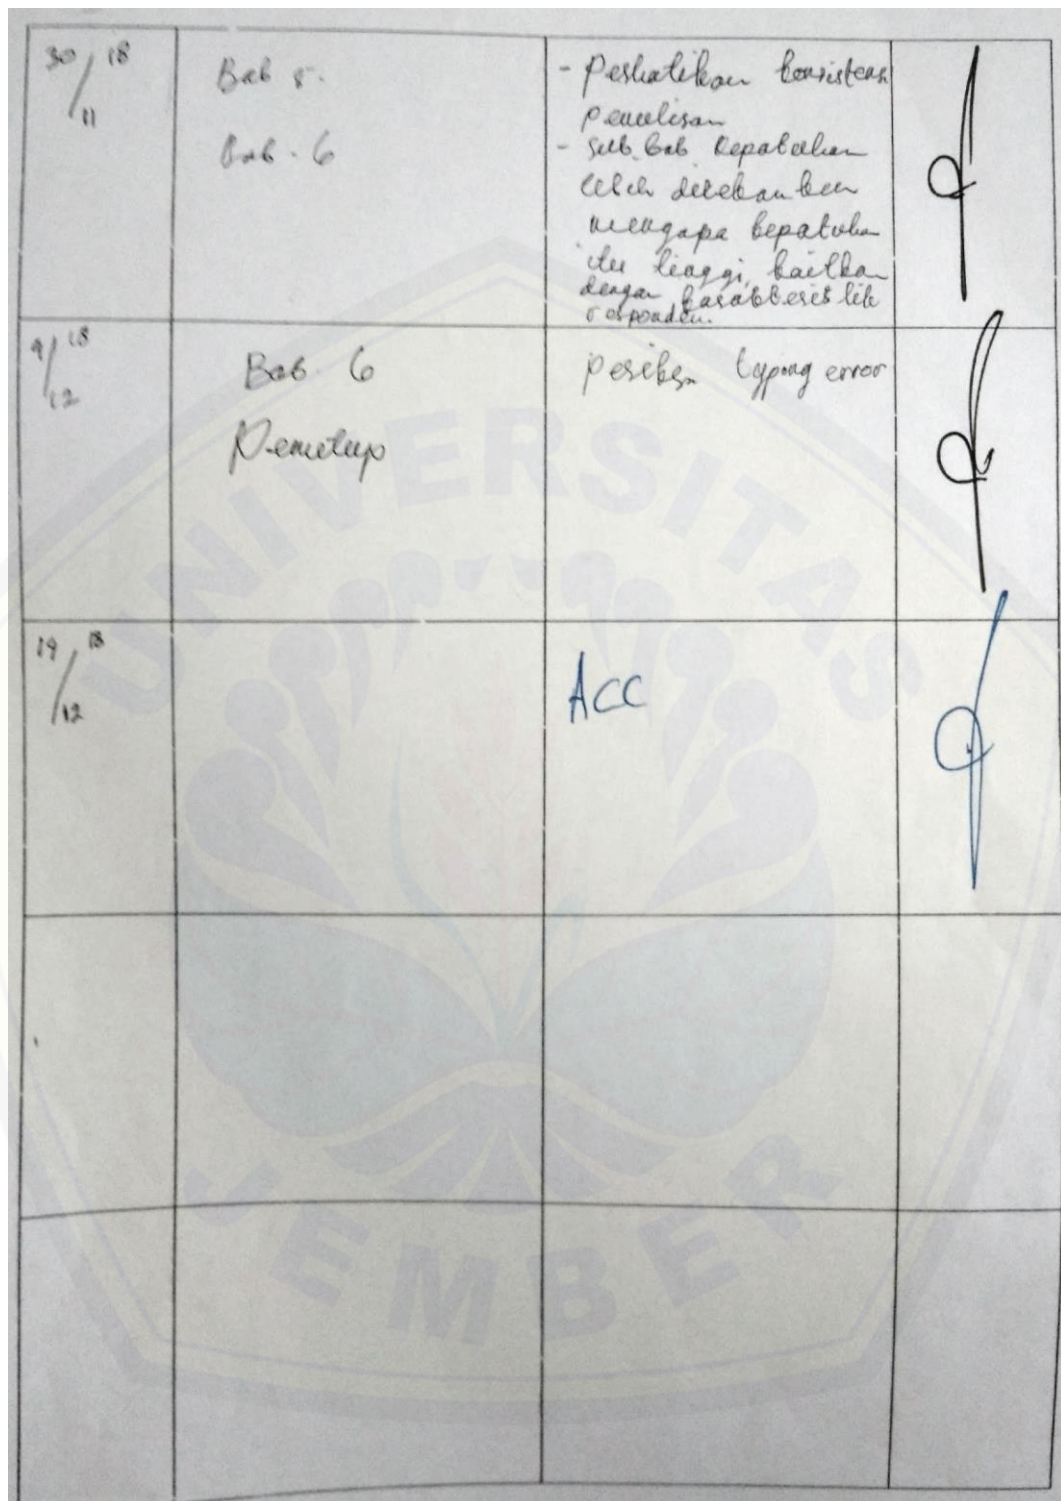 30/11 18
Bab 5.
Bab. 6
- Perhatikan konsistensi
penulisan
- Sub. Bab kepatuhan
lebih ditekankan
mengapa kepatuhan
itu tinggi, kaitkan
dengan karakteristik
responden.
9/12 18
Bab 6
Penutup
periksa typing error
19/12 18
ACC
UNIVERSITAS
JEMBER